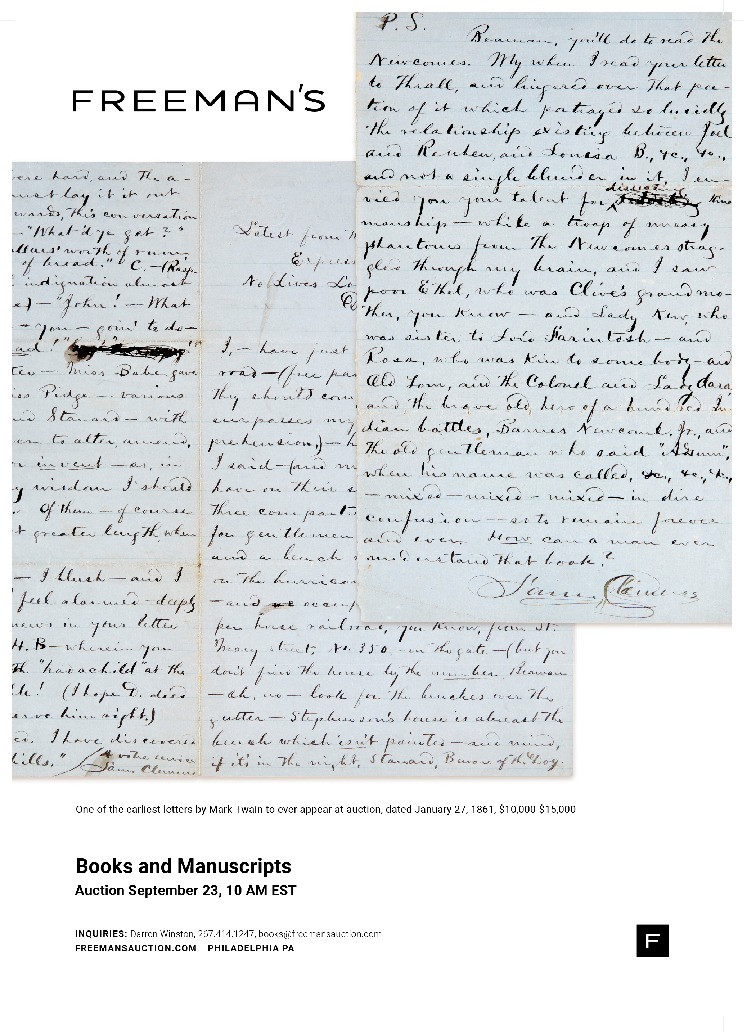 FREEMAN'S
P.S.
Beaman, you'll do to read the
Newcomes. My when I read your letter
to Thrall, and lingered over that por-
tion of it which portrayed so lucidly
the relationship existing between Joel
and Reuben, and Louisa B., &c., &c.,
and not a single blunder in it, I en-
vied you your talent for
manship — while a troop of massy
phantoms from The Newcomes strag-
gled through my brain, and I saw
poor Ethel, who was Clive's grandmo-
ther, you know — and Lady Kew, who
was sister to Lord Farintosh — and
Rosa, who was kin to some body — and
Old Tom, and the Colonel and Lady Clara,
and the brave old hero of a hundred In-
dian battles, Barnes Newcome, Jr., and
the old gentleman who said "Adsum",
when his name was called, &c., &c., &c.,
— mixed — mixed — mixed — in dire
confusion — so to remain forever
and ever. How can a man ever
understand that book?
Sam. Clemens
were hard, and the a-
must lay it it out
wards, this conversation
"What d'ye get?"
dollars' worth of rum,
of bread." C. — (Rasp
indignation almost
— "John! — What
— you — goin' to do —
— Miss Babe gave
Pidge — various
Stanard — with
to alter amend,
invent — as, in
wisdom I should
Of them — of course
greater length when
— I blush — and I
feel alarmed — deeply
news in your letter
H. B — wherein you
"has a child" at the
(I hope T. does
serve him right.)
I have discovered
Sam Clemens
Latest from
Express
No Lives Lo
I, — have just
road — (free pa
they should con
surpasses my
prehension,) — h
I said — and m
have on their s
three compart
for gentlemen
and a bench
on the hurrica
— and we occup
per horse railroad, you know, from St.
Mary street, No. 350 — on the gate — (but you
don't find the house by the number, Beaman
— ah, no — look for the benches over the
gutter — Stephenson's house is almost the
bench which isn't painted — and mind,
if it's in the night, Stanard, Beware of the Dog.
One of the earliest letters by Mark Twain to ever appear at auction, dated January 27, 1861, $10,000-$15,000
Books and Manuscripts
Auction September 23, 10 AM EST
INQUIRIES: Darren Winston, 267.414.1247, books@freemansauction.com
FREEMANSAUCTION.COM PHILADELPHIA PA
F